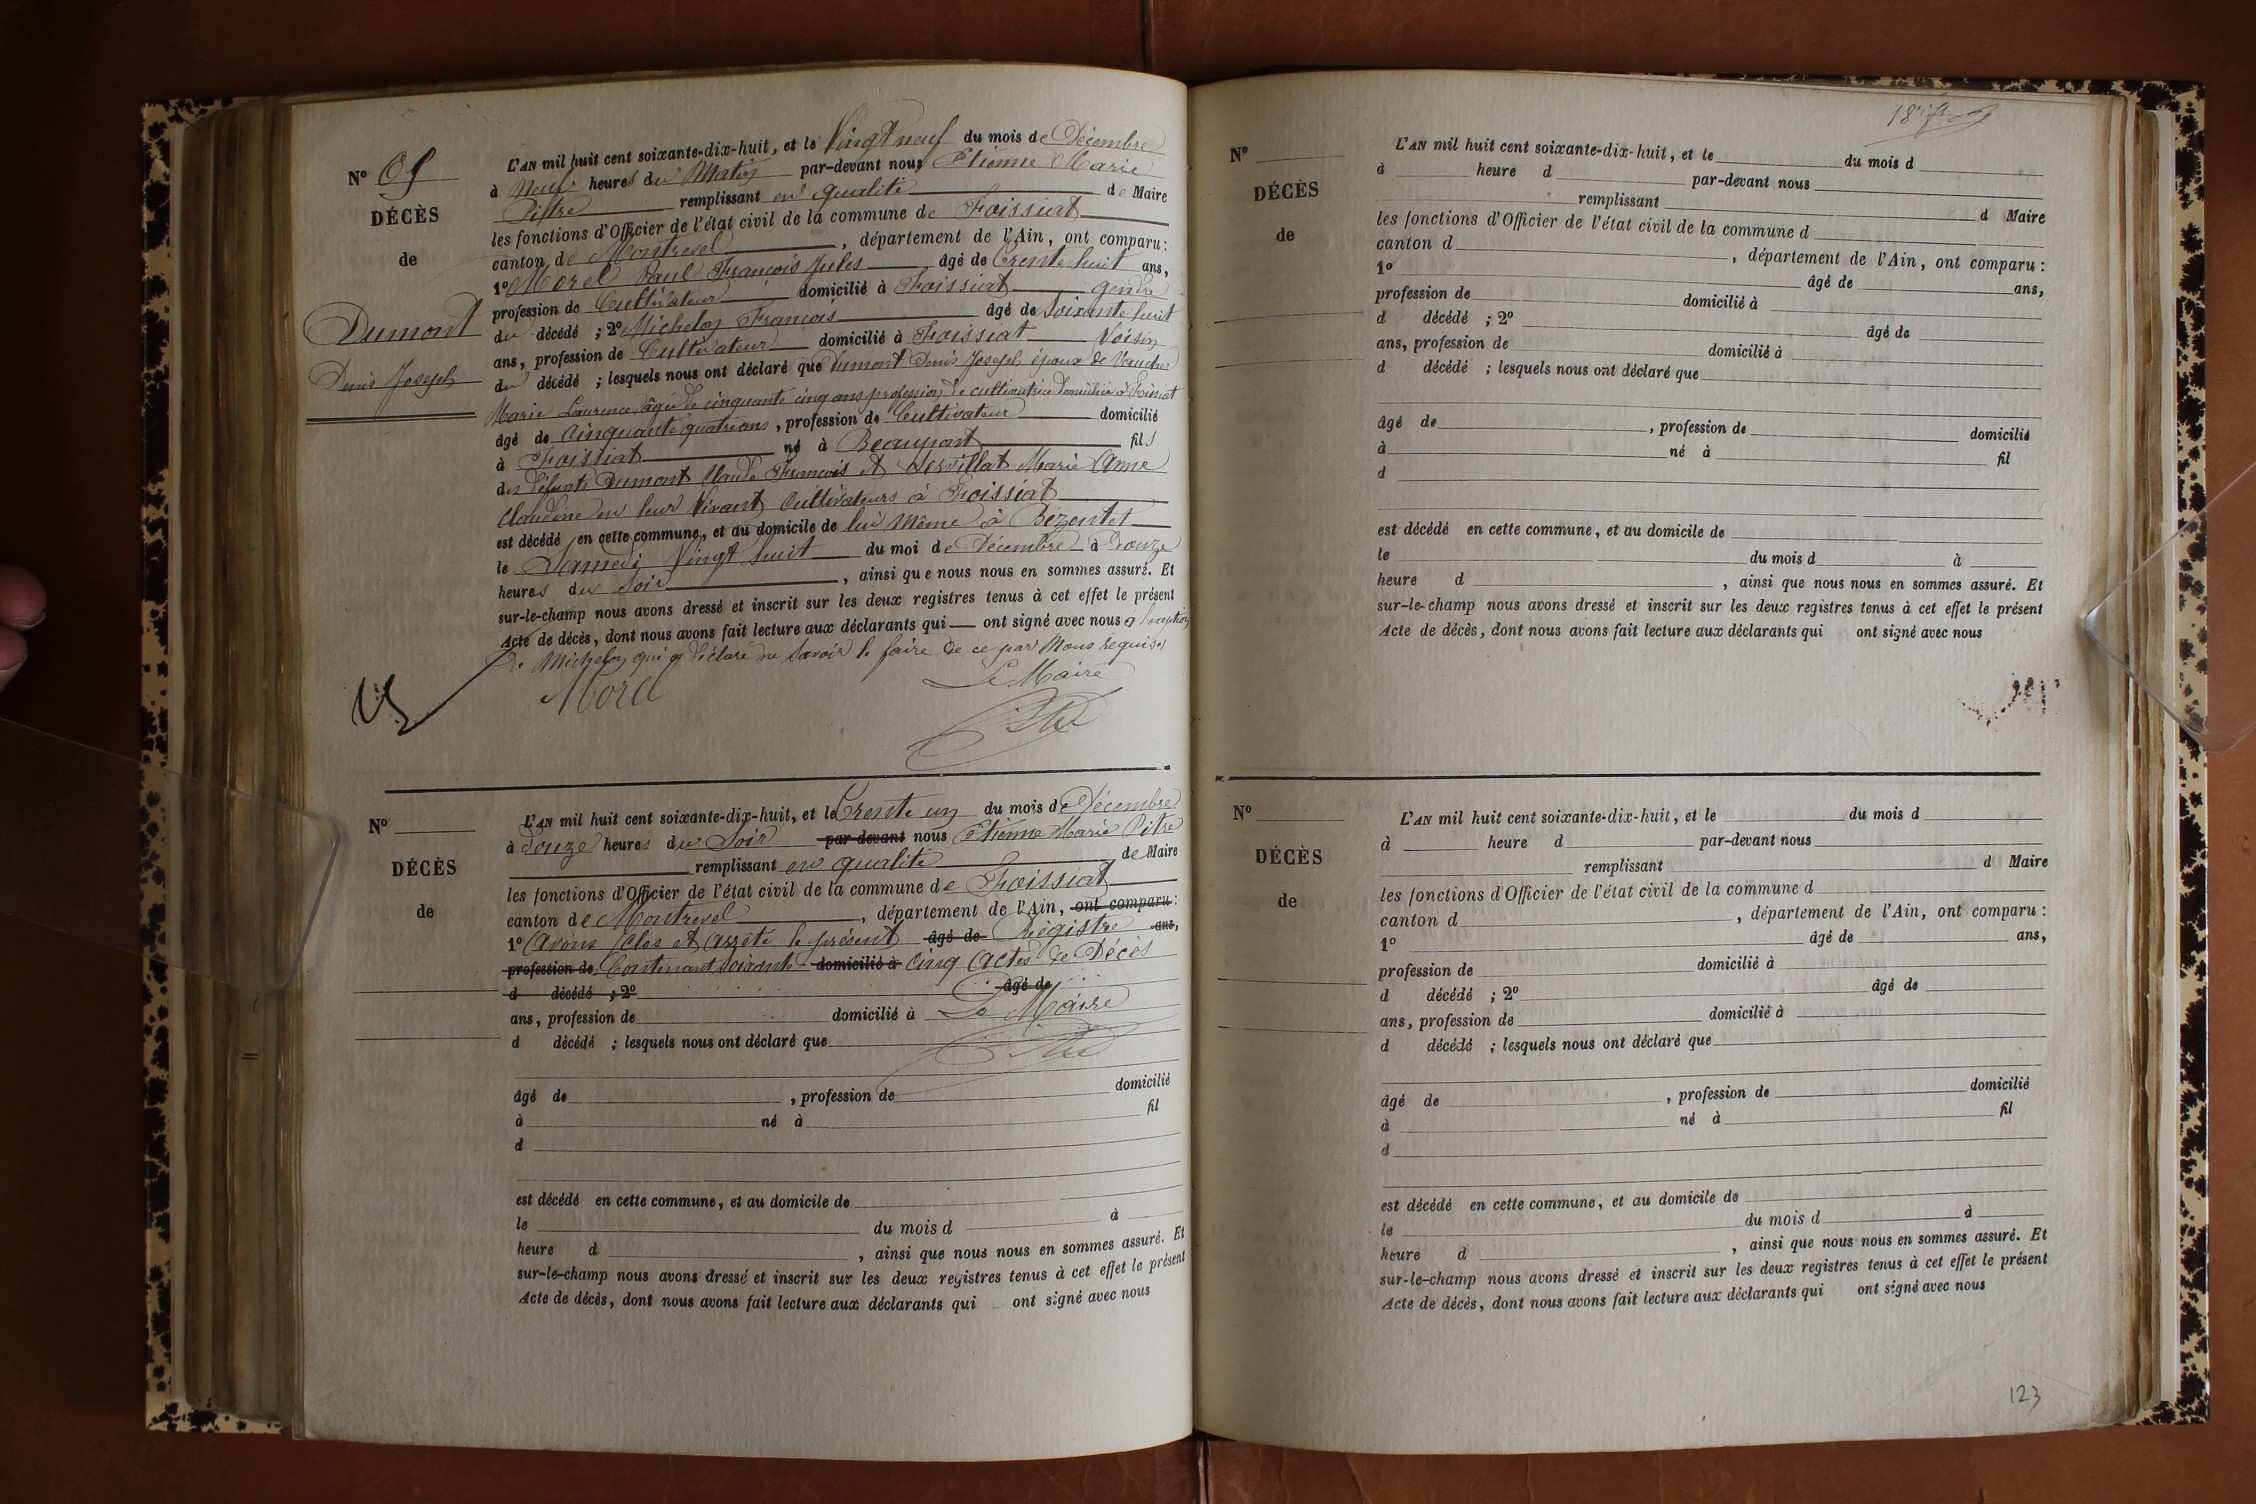 Nº 65
DÉCÈS
de
Dumont
Denis Joseph
L'AN mil huit cent soixante-dix-huit, et le Vingt neuf du mois de Décembre
à Neuf heures du Matin par-devant nous Etienne Marie
Pitre remplissant en qualité de Maire
les fonctions d'Officier de l'état civil de la commune de Foissiat
canton de Montrevel, département de l'Ain, ont comparu :
1º Morel Paul François Jules âgé de Trente huit ans,
profession de Cultivateur domicilié à Foissiat gendre
du décédé ; 2º Michelon François âgé de Soixante huit
ans, profession de Cultivateur domicilié à Foissiat Voisin
du décédé ; lesquels nous ont déclaré que Dumont Denis Joseph époux de
Marie Laurence âgée de cinquante cinq ans profession de cultivatrice domiciliée à Foissiat
âgé de Cinquante quatre ans, profession de Cultivateur domicilié
à Foissiat né à Beaupont fils
des défunts Dumont Claude François et Marie Anne
Claudine en leur Vivant Cultivateurs à Foissiat
est décédé en cette commune, et au domicile de lui même à Bézentet
le Samedi Vingt huit du moi de Décembre à onze
heures du Soir, ainsi que nous nous en sommes assuré. Et
sur-le-champ nous avons dressé et inscrit sur les deux registres tenus à cet effet le présent
Acte de décès, dont nous avons fait lecture aux déclarants qui ont signé avec nous à l'exception
de Michelon qui a déclaré ne savoir le faire de ce par Nous requis
Morel
Le Maire
Pitre
Nº
DÉCÈS
de
L'AN mil huit cent soixante-dix-huit, et le Trente un du mois de Décembre
à Douze heures du Soir par-devant nous Etienne Marie Pitre
remplissant en qualité de Maire
les fonctions d'Officier de l'état civil de la commune de Foissiat
canton de Montrevel, département de l'Ain, ont comparu :
1º Avons Clos et Arrêté le présent âgé de Registre ans,
profession de Contenant Soixante domicilié à cinq Actes de Décès
d décédé ; 2º âgé de
ans, profession de domicilié à Le Maire
d décédé ; lesquels nous ont déclaré que Pitre
âgé de, profession de domicilié
à né à fil
d
est décédé en cette commune, et au domicile de
le du mois d à
heure d, ainsi que nous nous en sommes assuré. Et
sur-le-champ nous avons dressé et inscrit sur les deux registres tenus à cet effet le présent
Acte de décès, dont nous avons fait lecture aux déclarants qui ont signé avec nous
Nº
DÉCÈS
de
L'AN mil huit cent soixante-dix-huit, et le du mois d
à heure d par-devant nous
remplissant d Maire
les fonctions d'Officier de l'état civil de la commune d
canton d, département de l'Ain, ont comparu :
1º âgé de ans,
profession de domicilié à
d décédé ; 2º âgé de
ans, profession de domicilié à
d décédé ; lesquels nous ont déclaré que
âgé de, profession de domicilié
à né à fil
d
est décédé en cette commune, et au domicile de
le du mois d à
heure d, ainsi que nous nous en sommes assuré. Et
sur-le-champ nous avons dressé et inscrit sur les deux registres tenus à cet effet le présent
Acte de décès, dont nous avons fait lecture aux déclarants qui ont signé avec nous
Nº
DÉCÈS
de
L'AN mil huit cent soixante-dix-huit, et le du mois d
à heure d par-devant nous
remplissant d Maire
les fonctions d'Officier de l'état civil de la commune d
canton d, département de l'Ain, ont comparu :
1º âgé de ans,
profession de domicilié à
d décédé ; 2º âgé de
ans, profession de domicilié à
d décédé ; lesquels nous ont déclaré que
âgé de, profession de domicilié
à né à fil
d
est décédé en cette commune, et au domicile de
le du mois d à
heure d, ainsi que nous nous en sommes assuré. Et
sur-le-champ nous avons dressé et inscrit sur les deux registres tenus à cet effet le présent
Acte de décès, dont nous avons fait lecture aux déclarants qui ont signé avec nous
123